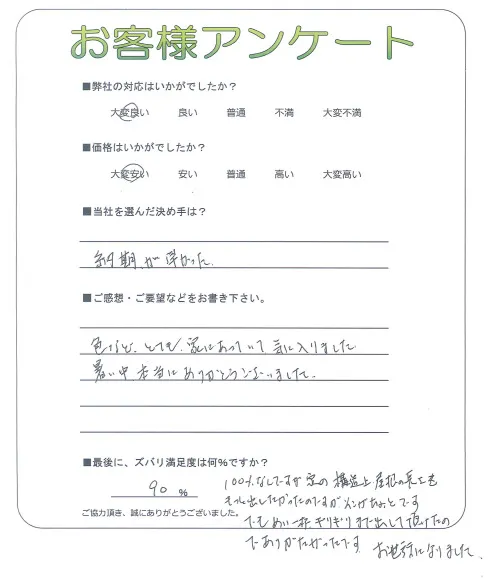 お客様アンケート
■弊社の対応はいかがでしたか?
大変良い 良い 普通 不満 大変不満
■価格はいかがでしたか?
大変安い 安い 普通 高い 大変高い
■当社を選んだ決め手は?
納期が早かった
■ご感想・ご要望などをお書き下さい。
色など、とても、家にあっていて気に入りました
暑い中本当にありがとうございました。
■最後に、ズバリ満足度は何%ですか?
90 %
100%なしですが家の構造上屋根の長さも
もっと出したかったのですが ちょっとです
でもめいっ杯ギリギリまで出して頂けたの
でありがたかったです お世話になりました、
ご協力頂き、誠にありがとうございました。